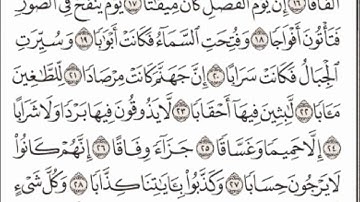 أَلْفَافًا ١٦ إِنَّ يَوْمَ الْفَصْلِ كَانَ مِيقَاتًا ١٧ يَوْمَ يُنفَخُ فِي الصُّورِ
فَتَأْتُونَ أَفْوَاجًا ١٨ وَفُتِحَتِ السَّمَاءُ فَكَانَتْ أَبْوَابًا ١٩ وَسُيِّرَتِ
الْجِبَالُ فَكَانَتْ سَرَابًا ٢٠ إِنَّ جَهَنَّمَ كَانَتْ مِرْصَادًا ٢١ لِّلطَّٰغِينَ
مَـَٔابًا ٢٢ لَّٰبِثِينَ فِيهَا أَحْقَابًا ٢٣ لَّا يَذُوقُونَ فِيهَا بَرْدًا وَلَا شَرَابًا
٢٤ إِلَّا حَمِيمًا وَغَسَّاقًا ٢٥ جَزَآءً وِفَاقًا ٢٦ إِنَّهُمْ كَانُوا
لَا يَرْجُونَ حِسَابًا ٢٧ وَكَذَّبُوا بِـَٔايَٰتِنَا كِذَّابًا ٢٨ وَكُلَّ شَيْءٍ